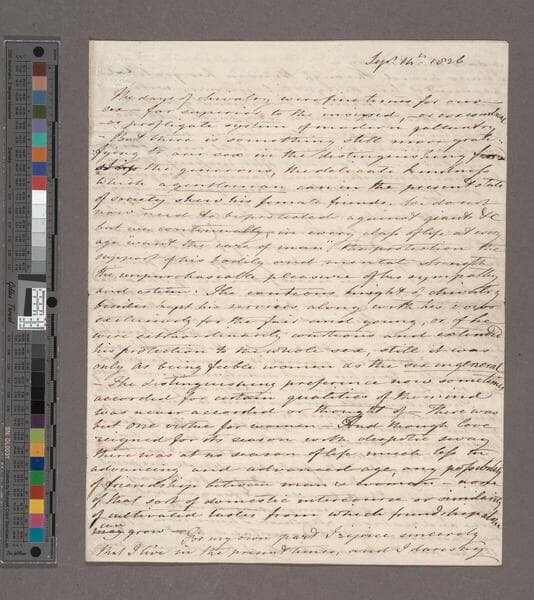 Sep.r 14th 1826
The days of chivalry were fine times for our
sex – far superior to the insipid, – or coxcombical
– or profligate system of modern gallantry
– But there is something still more grati-
fying to our sex in the distinguishing
the generous, the delicate kindness
which a gentleman can in the present state
of society shew his female friends. We do not
now need to be protected against giants &c
but we continually, in every class of life at every
age want "the care of man" the protection the
support of his bodily and mental strength
the unpurchaseable pleasure of his sympathy
and esteem. The courteous knight of chivalry
besides kept his services along with his vows
exclusively for the fair and young, or if he
were extraordinarily courteous and extended
his protection to the whole sex, still it was
only as being feeble women as the sex in general
– The distinguishing preference now sometimes
accorded for certain qualities of the mind
was never accorded or thought of – There was
but one virtue for women – And though love
reigned for its season with despotic sway
there was at no season of life much less in
advancing and advanced age, any possibility
of friendship between man & woman – none
of that sort of domestic intercourse or similarity
of cultivated tastes from which friendship alone
can grow – For my own part I rejoice sincerely
that I live in the present times, and I dare say